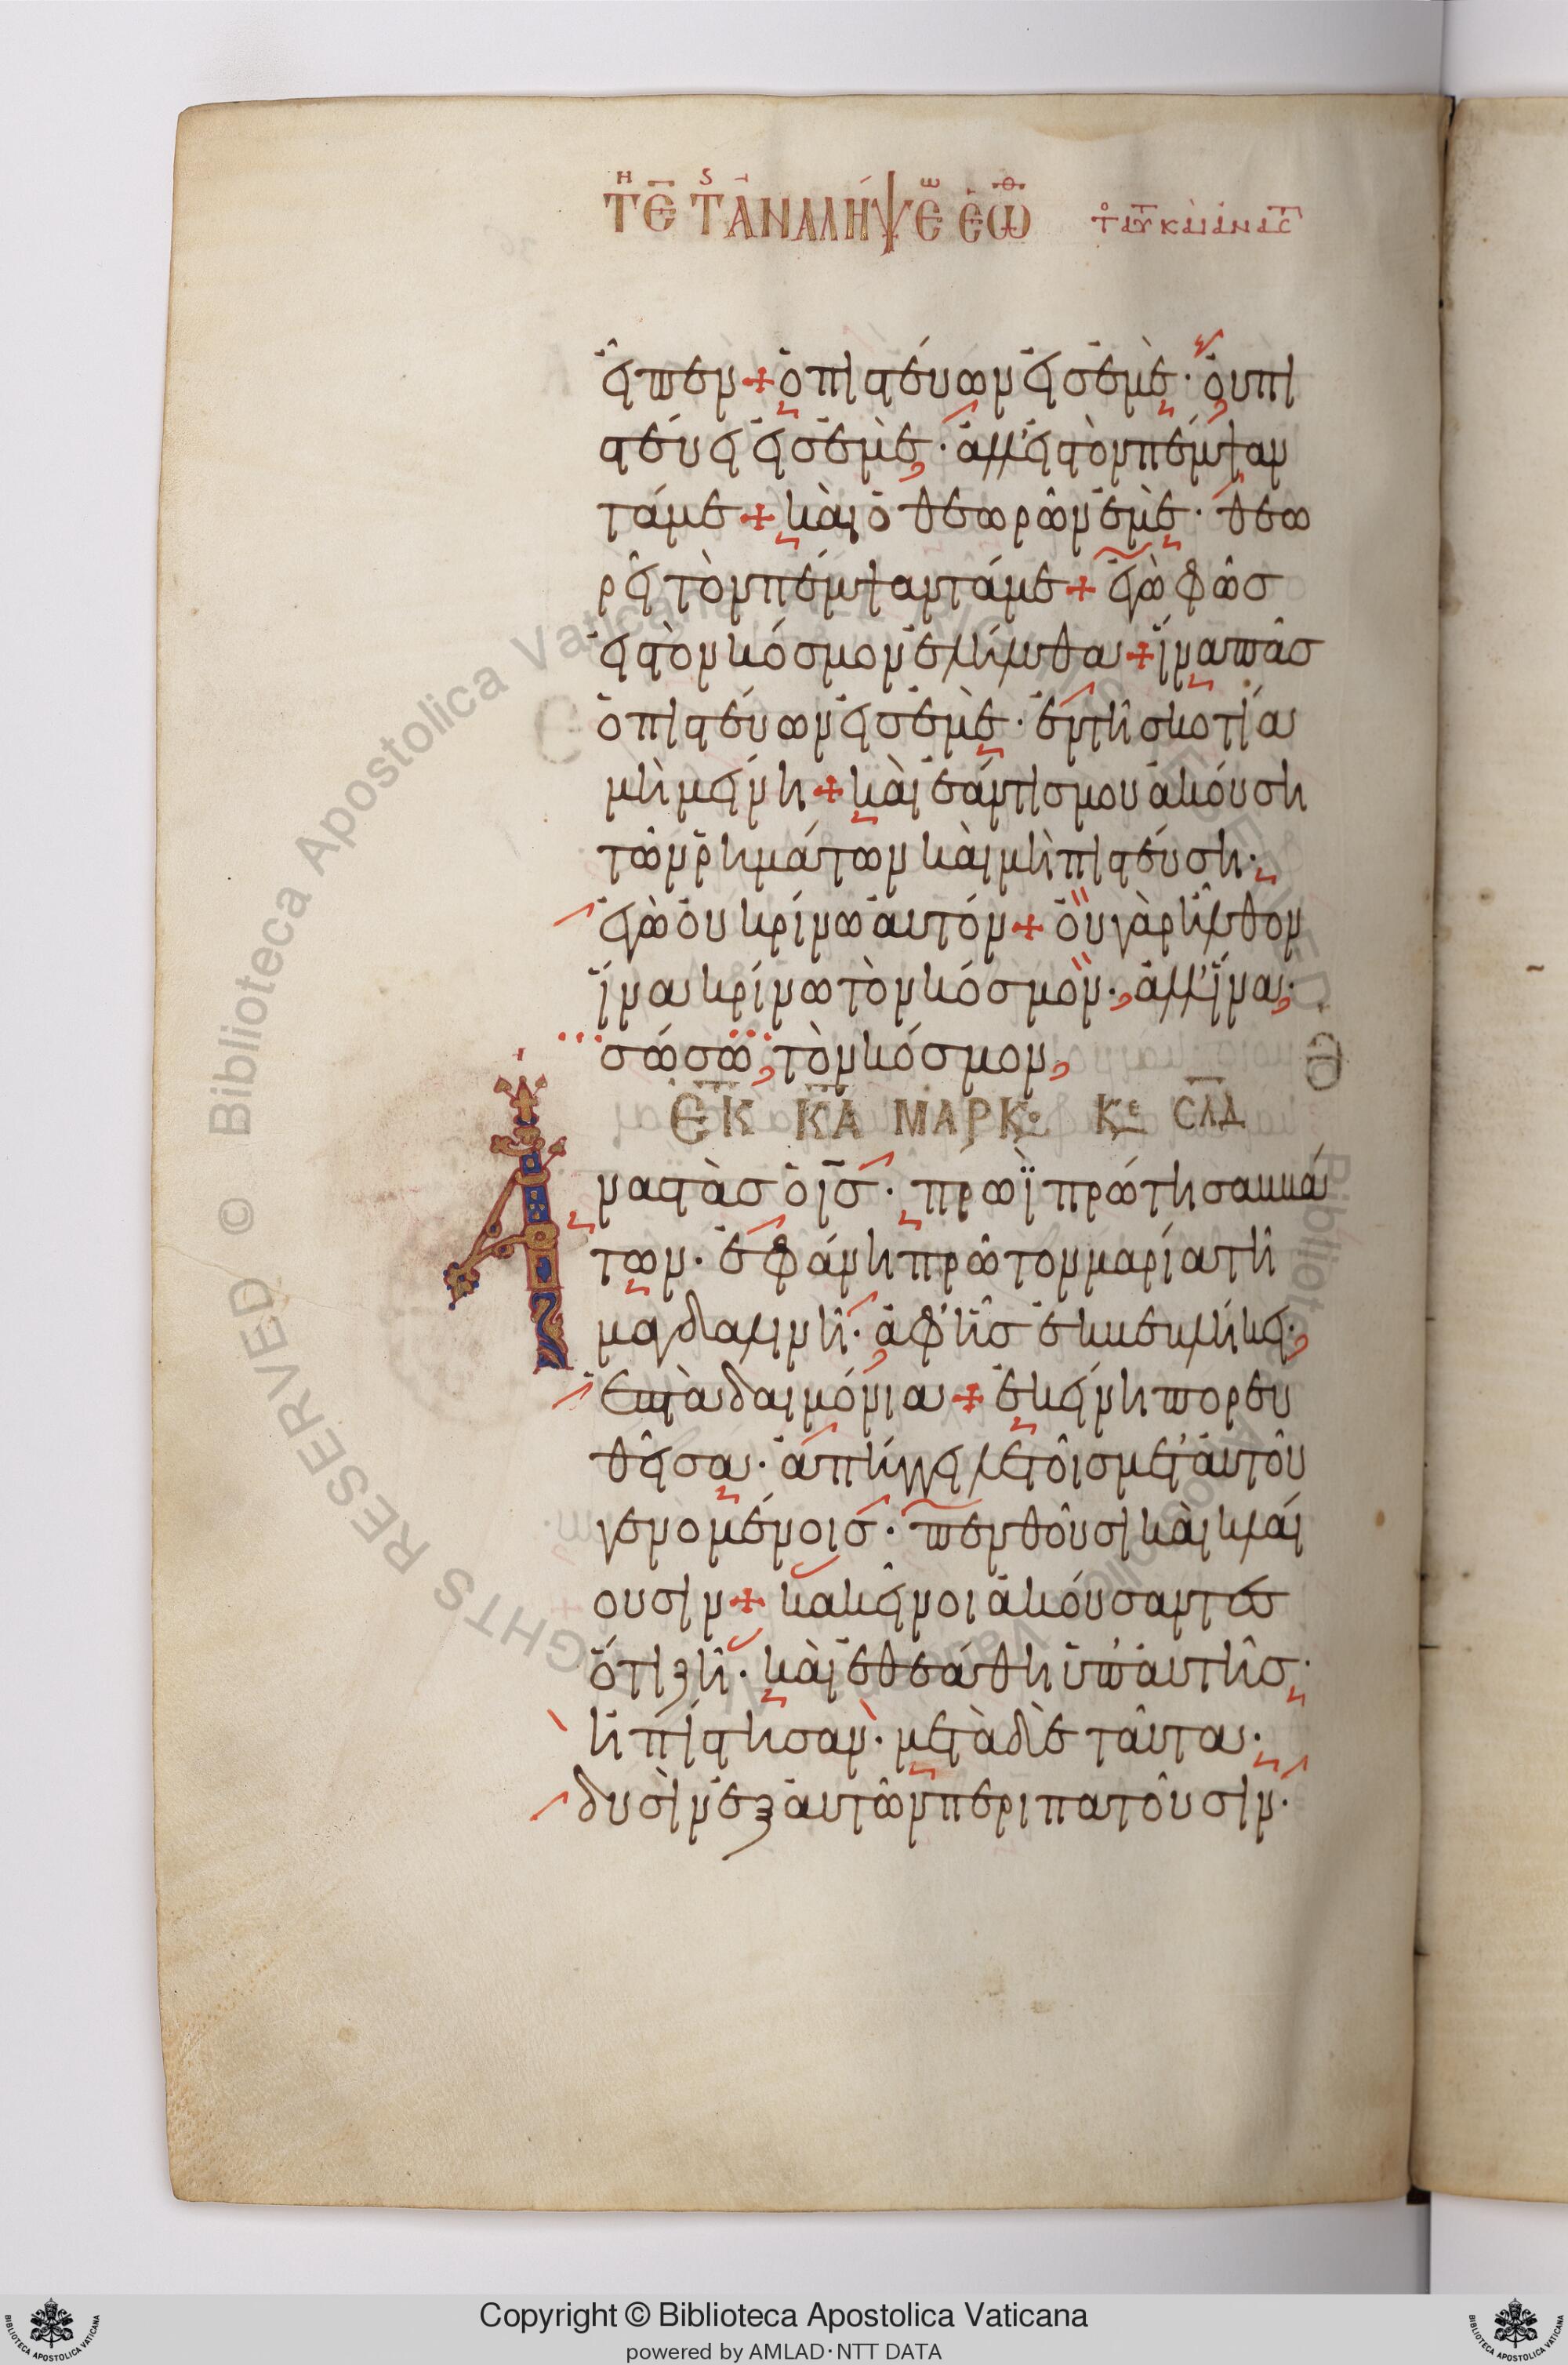 ΤΗ Ε̅ Τ ΑΝΑΛΗΨΕ ΕΩ
εἶπεν + ὁ πιστεύων εἰς ἐμὲ · οὐ πι
στεύει εἰς ἐμὲ · ἀλλ' εἰς τὸν πέμψαν
τά με + καὶ ὁ θεωρῶν ἐμὲ · θεω
ρεῖ τὸν πέμψαντά με + ἐγὼ φῶσ
εἰς τὸν κόσμον ἐλήλυθα + ἵνα πᾶσ
ὁ πιστεύων εἰς ἐμὲ · ἐν τῆ σκοτία
μὴ μείνη + καὶ ἐάν τισ μου ἀκούση
τῶν ῥημάτων καὶ μὴ πιστεύση ·
ἐγὼ οὐ κρίνω αὐτόν + οὐ γὰρ ἦλθον
ἵνα κρίνω τὸν κόσμον · ἀλλ' ἵνα
σώσω τὸν κόσμον
ΕΚ ΚΑ ΜΑΡΚο
ναστὰσ ὁ ι̅σ̅ · πρωῒ πρώτη σαββά
των · ἐφάνη πρῶτον μαρία τῆ
μαγδαληνῆ · ἀφ' ἧσ ἐκβεβλήκει
ἑπτὰ δαιμόνια + ἐκείνη πορευ
θεῖσα · ἀπήγγειλε τοῖσ μετ' αὐτοῦ
γενομένοισ · πενθοῦσι καὶ κλαί
ουσιν + κακεῖνοι ἀκούσαντεσ
ὅτι ζῆ · καὶ ἐθεάθη ὑπ' αὐτῆσ ·
ἠπίστησαν · μετὰ δὲ ταῦτα ·
δυσὶν ἐξ αὐτῶν περιπατοῦσιν ·
© Biblioteca Apostolica Vaticana
Copyright © Biblioteca Apostolica Vaticana
powered by AMLAD·NTT DATA